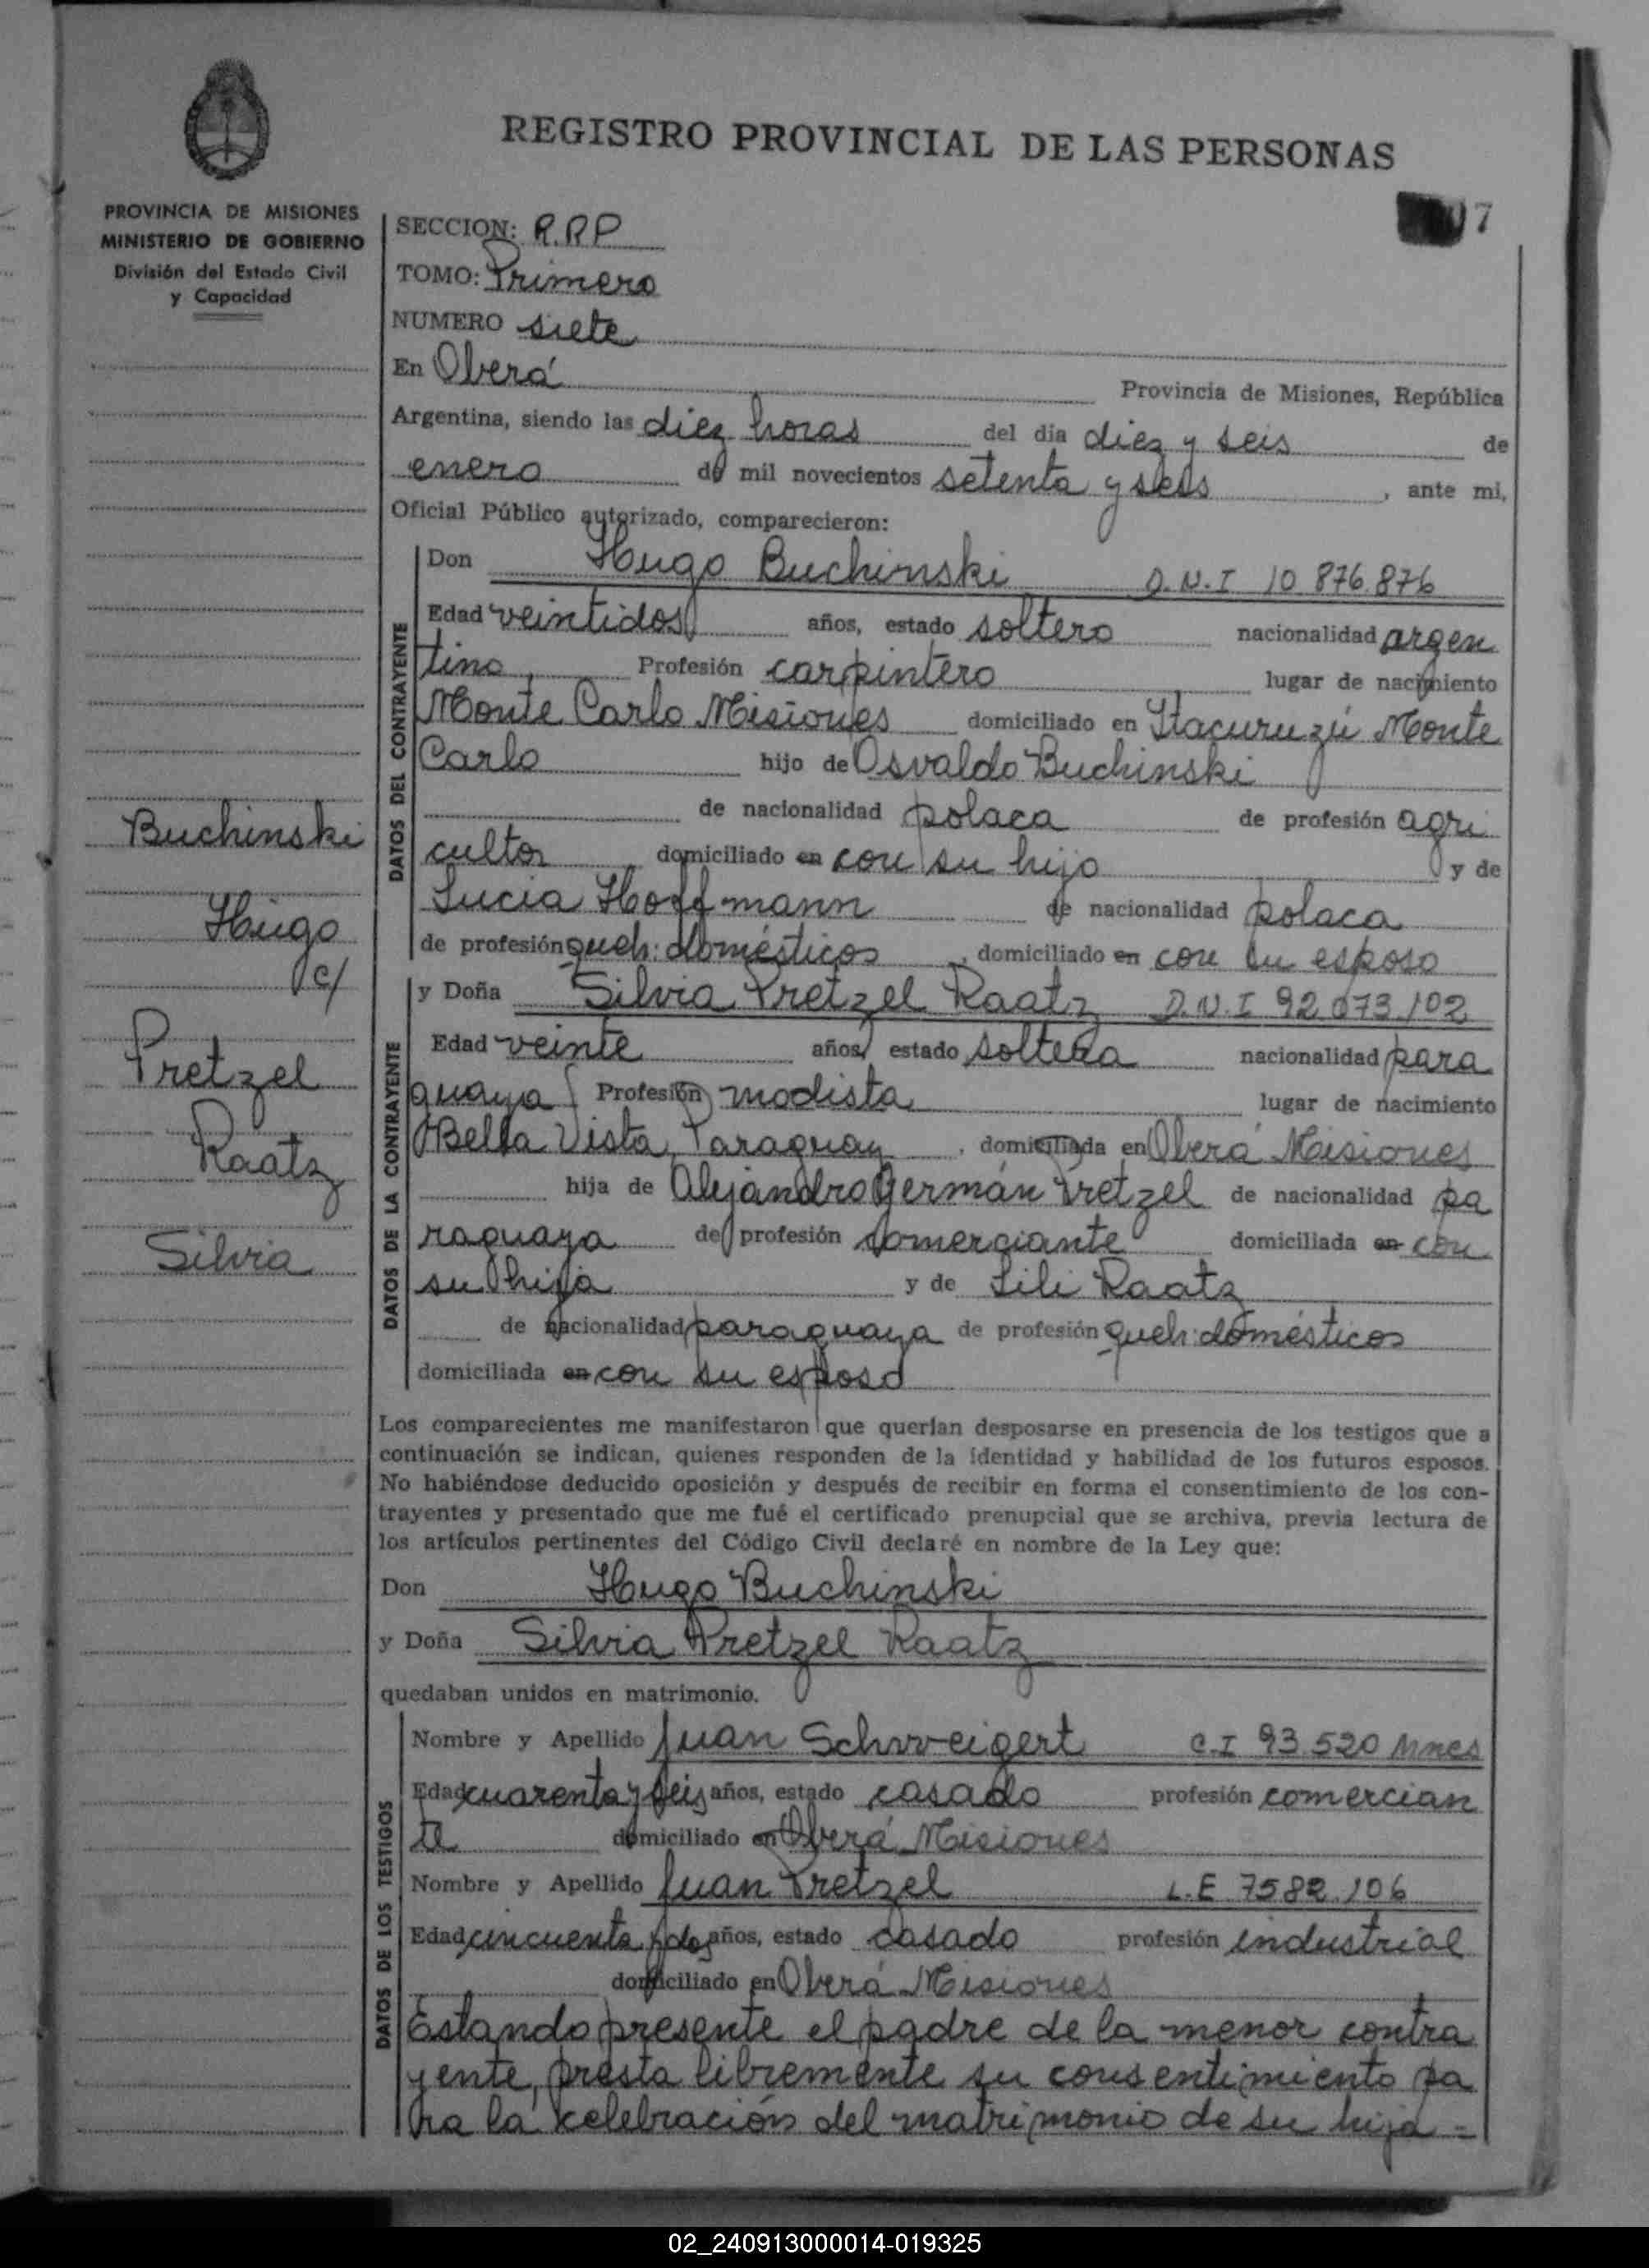 REGISTRO PROVINCIAL DE LAS PERSONAS
07
PROVINCIA DE MISIONES
MINISTERIO DE GOBIERNO
División del Estado Civil
y Capacidad
SECCION: R.R.P
TOMO: Primero
NUMERO siete
En Oberá Provincia de Misiones, República
Argentina, siendo las diez horas del día diez y seis de
enero de mil novecientos setenta y seis, ante mi,
Oficial Público autorizado, comparecieron:
DATOS DEL CONTRAYENTE
Don Hugo Buchinski D.N.I 10.876.876
Edad veintidos años, estado soltero nacionalidad argen
tino, Profesión carpintero lugar de nacimiento
Monte Carlo Misiones domiciliado en Itacuruzú Monte
Carlo hijo de Osvaldo Buchinski
de nacionalidad polaca de profesión agri
cultor domiciliado en con su hijo y de
Lucia Hoffmann de nacionalidad polaca
de profesión queh: domésticos, domiciliado en con su esposo
DATOS DE LA CONTRAYENTE
y Doña Silvia Pretzel Raatz D.N.I 92.073.102
Edad veinte años, estado soltera nacionalidad para
guaya Profesión modista lugar de nacimiento
Bella Vista, Paraguay, domiciliada en Oberá Misiones
hija de Alejandro Germán Pretzel de nacionalidad pa
raguaya de profesión comerciante domiciliada en con
su hija y de Lili Raatz
de nacionalidad paraguaya de profesión queh: domésticos
domiciliada en con su esposo
Los comparecientes me manifestaron que querían desposarse en presencia de los testigos que a
continuación se indican, quienes responden de la identidad y habilidad de los futuros esposos.
No habiéndose deducido oposición y después de recibir en forma el consentimiento de los con-
trayentes y presentado que me fué el certificado prenupcial que se archiva, previa lectura de
los artículos pertinentes del Código Civil declaré en nombre de la Ley que:
Don Hugo Buchinski
y Doña Silvia Pretzel Raatz
quedaban unidos en matrimonio.
DATOS DE LOS TESTIGOS
Nombre y Apellido Juan Schweigert C.I 93.520 Mnes
Edad cuarenta y seis años, estado casado profesión comercian
te domiciliado en Oberá Misiones
Nombre y Apellido Juan Pretzel L.E 7582.106
Edad cincuenta y dos años, estado casado profesión industrial
domiciliado en Oberá Misiones
Estando presente el padre de la menor contra
yente, presta libremente su consentimiento pa
ra la celebración del matrimonio de su hija =
Buchinski
Hugo
c/
Pretzel
Raatz
Silvia
02_240913000014-019325